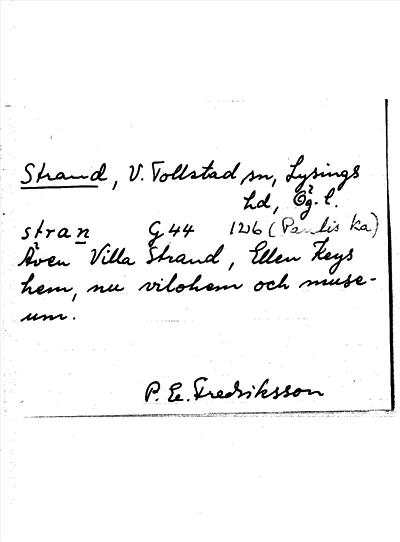 Strand, V. Tollstad sn, Lysings
hd, Ög. l.
stran G 44 1216 (Paulis ka)
Även Villa Strand, Ellen Keys
hem, nu vilohem och muse-
um.
P. E. Fredriksson